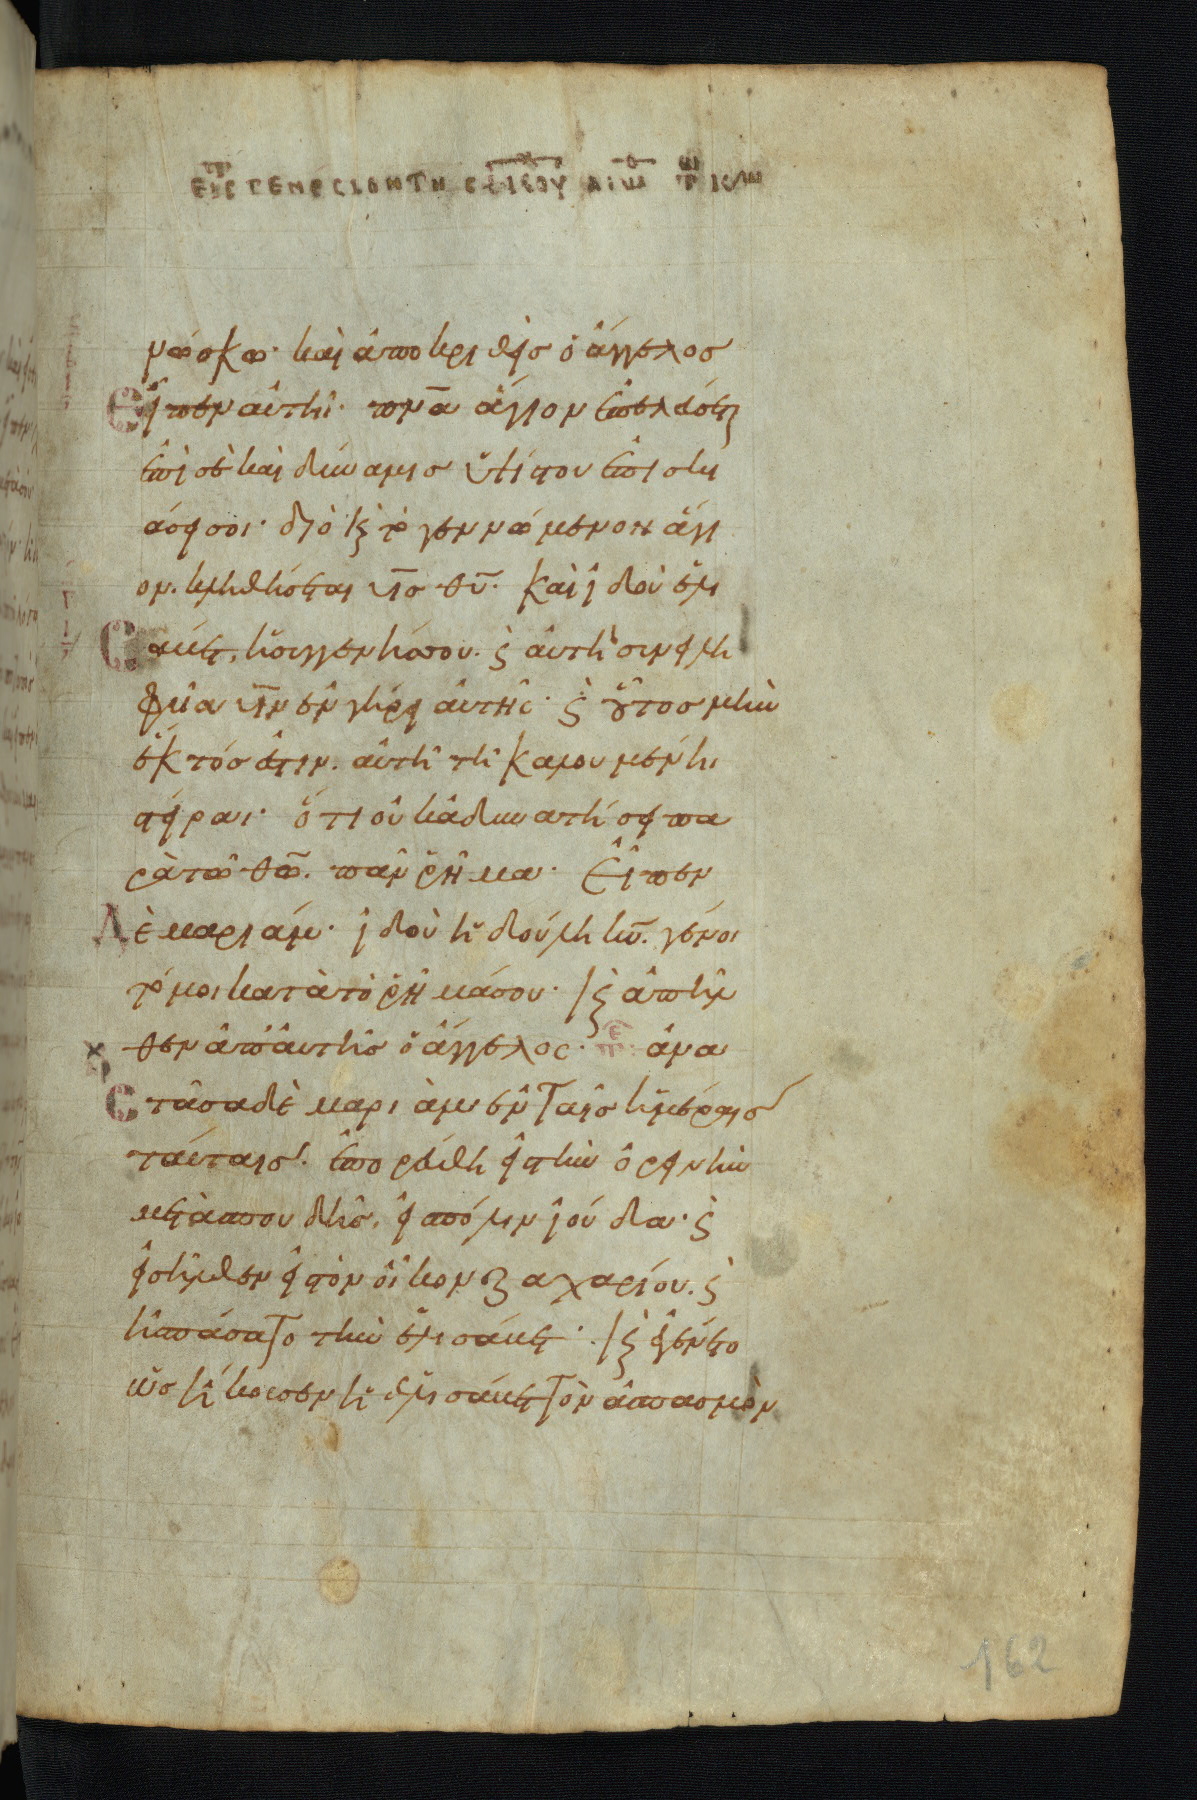 νώσκω· καὶ ἀποκριθεὶς ὁ ἄγγελος
εἶπεν αὐτῆ· πν̅α ἅγιον ἐπελεύσετ
ἐπὶ σὲ καὶ δύναμις ὑψίστου ἐπισκι
άσει σοι· διὸ κ̀ τὸ γεννώμενον ἅγι
ον. κληθήσεται υ̅ς θ̅υ. καὶ ἰδοὺ ἐλι
σάβετ, ἡ συγγενής σου. κ̀ αὐτὴ συνειλη
φυῖα υ̅ν ἐν γήρει αὐτῆς· κ̀ οὗτος μὴν
ἕκτος ἐστιν. αὐτῆ τῆ καλουμένη
στείρα· ὅτι οὐκ ἀδυνατήσει πα
ρὰ τῶ θ̅ω. πᾶν ῥῆμα· εἶπεν
δὲ μαριάμ· ἰδοὺ ἡ δούλη κ̅υ. γένοι
τό μοι κατὰ τὸ ῥῆμά σου· κ̀ ἀπῆλ
θεν ἀπ' αὐτῆς ὁ ἄγγελος· ἀνα
στᾶσα δὲ μαριὰμ ἐν ταῖς ἡμέραις
ταύταις. ἐπορεύθη εἰς τὴν ὀρεινὴν
μετὰ σπουδῆς. εἰς πόλιν ἰούδα· κ̀
εἰσῆλθεν εἰς τὸν οἶκον ζαχαρίου. κ̀
ἠσπάσατο τὴν ἐλισάβετ· κ̀ ἐγένετο
ὡς ἤκουσεν ἡ ἐλισάβετ τὸν ἀσπασμὸν
162